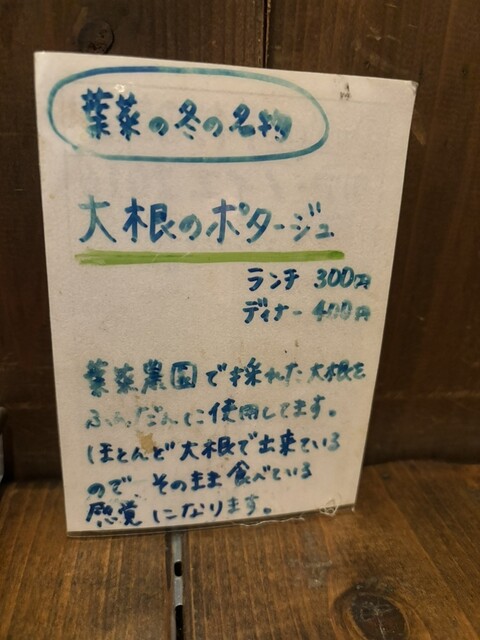 葉菜の冬の名物
大根のポタージュ
ランチ 300円
ディナー 400円
葉菜農園で採れた大根を
ふんだんに使用してます。
ほとんど大根で出来ている
ので、そのまま食べている
感覚になります。